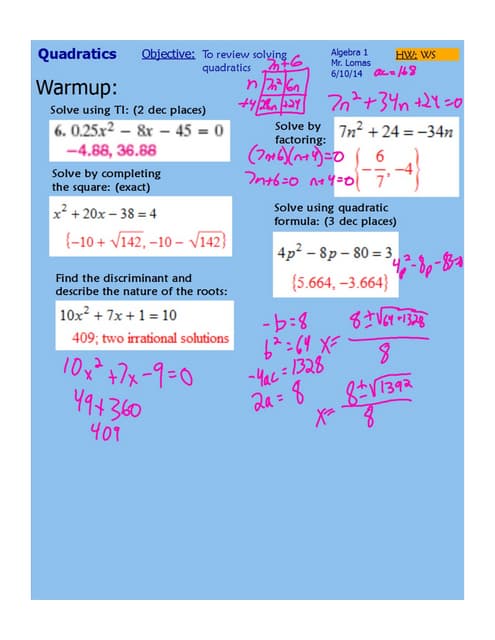 Quadratics
Objective: To review solving
quadratics
Algebra 1
Mr. Lomas
6/10/14
HW: WS
ac=168
7n+6
n 7n² 6n
+4 28n +24
7n²+34n+24=0
Warmup:
Solve using TI: (2 dec places)
6. 0.25x² − 8x − 45 = 0
−4.88, 36.88
Solve by
factoring:
7n² + 24 = −34n
{−6/7, −4}
(7n+6)(n+4)=0
7n+6=0 n+4=0
Solve by completing
the square: (exact)
x² + 20x − 38 = 4
{−10 + √142, −10 − √142}
Solve using quadratic
formula: (3 dec places)
4p² − 8p − 80 = 3
{5.664, −3.664}
4p²-8p-83=0
Find the discriminant and
describe the nature of the roots:
10x² + 7x + 1 = 10
409; two irrational solutions
10x²+7x-9=0
49+360
409
-b=8
b²=64
-4ac=1328
2a=8
x= 8±√64+1328
8
x= 8±√1392
8